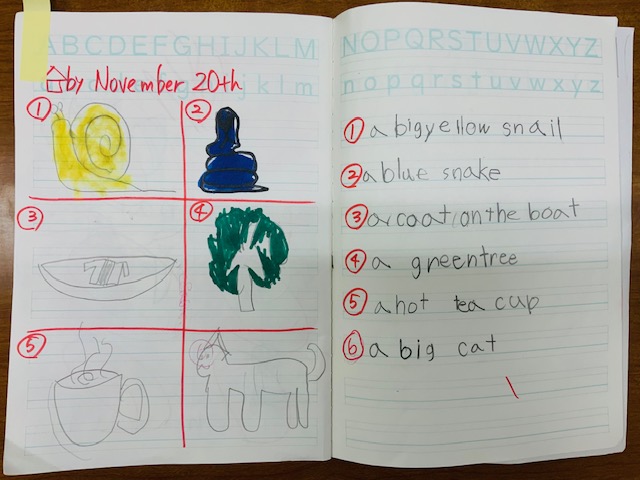 ABCDEFGHIJKLM
by November 20th
①
②
③
④
⑤
NOPQRSTUVWXYZ
nopqrstuvwxyz
① a big yellow snail
② a blue snake
③ a coat on the boat
④ a green tree
⑤ a hot tea cup
⑥ a big cat